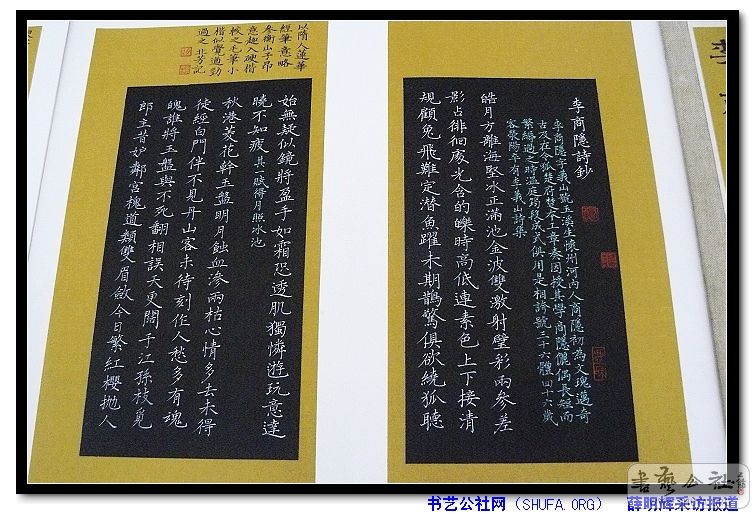 李商隱詩鈔
李商隱字義山號玉溪生懷州河內人商隱初為文瑰邁奇
古及在令狐楚府楚本工章奏因授其學商隱儷偶長短而
繁縟過之時溫庭筠段成式俱用是相誇號三十六體四十六歲
客滎陽卒有李義山詩集
皓月方離海堅冰正滿池金波雙激射璧彩兩參差
影占徘徊處光含的皪時高低連素色上下接清
規顧兔飛難定潛魚躍未期鵲驚俱欲繞狐聽
以隋人蓮華
經筆意略
參衡山子昂
意趣入硬楷
較之毛筆小
楷似覺遒勁
過之北芳記
始無疑似鏡將盈手如霜恐透肌獨憐遊玩意達
曉不知疲其一賦得月照冰池
秋港菱花幹玉盤明月蝕血滲兩枯心情多去未得
徒經白門伴不見丹山客未待刻作人愁多有魂
魄誰將玉盤與不死翻相誤天更闊于江孫枝覓
郎主昔妒鄰宮槐道類雙眉斂今日繁紅櫻拋人
書藝公社
书艺公社网（SHUFA.ORG） 薛明辉采访报道